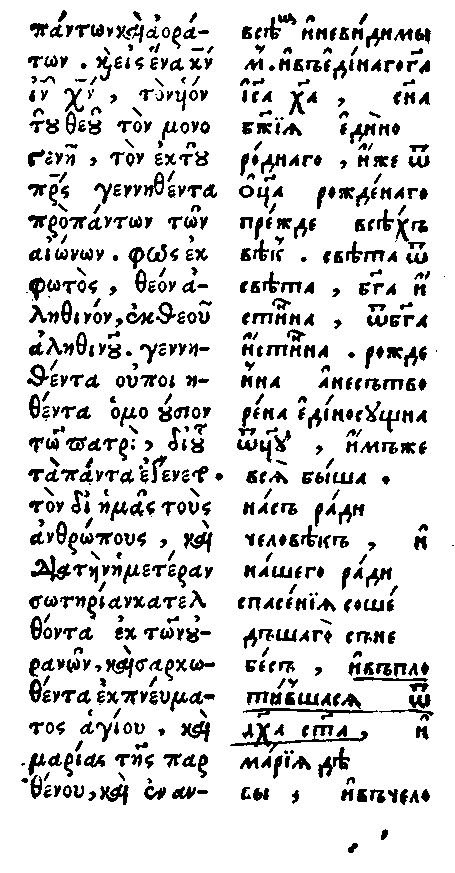 πάντων καὶ ἀορά-
των . κ̀ εἰς ἕνα κν̄
ἰν̄ χν̄, τὸν ὑὸν
τοῦ θεοῦ τὸν μονο
γενῆ, τὸν ἐκ τοῦ
πρ̄ς γεννηθέντα
πρὸ πάντων τῶν
αἰώνων . φῶς ἐκ
φωτὸς, θεὸν ἀ-
ληθινόν, ἐκ θεοῦ
ἀληθινοῦ. γεννη-
θέντα οὐ ποιη-
θέντα ὁμοούσιον
τῶ πατρὶ, δι οὗ
τὰ πάντα ἐγένετο.
τὸν δι ἡμᾶς τοὺς
ἀνθρώπους, καὶ
διὰ τὴν ἡμετέραν
σωτηρίαν κατελ
θόντα ἐκ τῶν οὐ-
ρανῶν, καὶ σαρκω-
θέντα ἐκ πνέυμα-
τος ἁγίου, καὶ
μαρίας τῆς παρ
θένου, καὶ ἐν αν-
всѣⷨ҇ и҆невѝдимы
м̑. и҆въе҆дінагогⷭ҇а
і҆с҃а хⷭ҇а, сн҃а
бж҃їѧ е҆ди́но
ро́днаго, и҆́же ѿ
ѻ҆ц҃а рожде́наго
пре́жде всѣ́хъ
вѣⷦ҇ . свѣта ѿ
свѣта, бг҃а и҆́
стинна, ѿ бг҃а
и҆́стинна . рожде
нна а҆несътво
рена е҆диносущна
ѿц҃у, и҆́мъже
всѧ̀ бы́ша .
на́съ ра́ди
человѣкъ, и҆
на́шего ра́ди
спасе́нїѧ соше́
дъшаго̀ съне
бе́съ, и҆въпло
ти́вшасѧ ѿ
дх҃а ст҃а, и҆
марі́ѧ дѣ
вы, и҆въчело